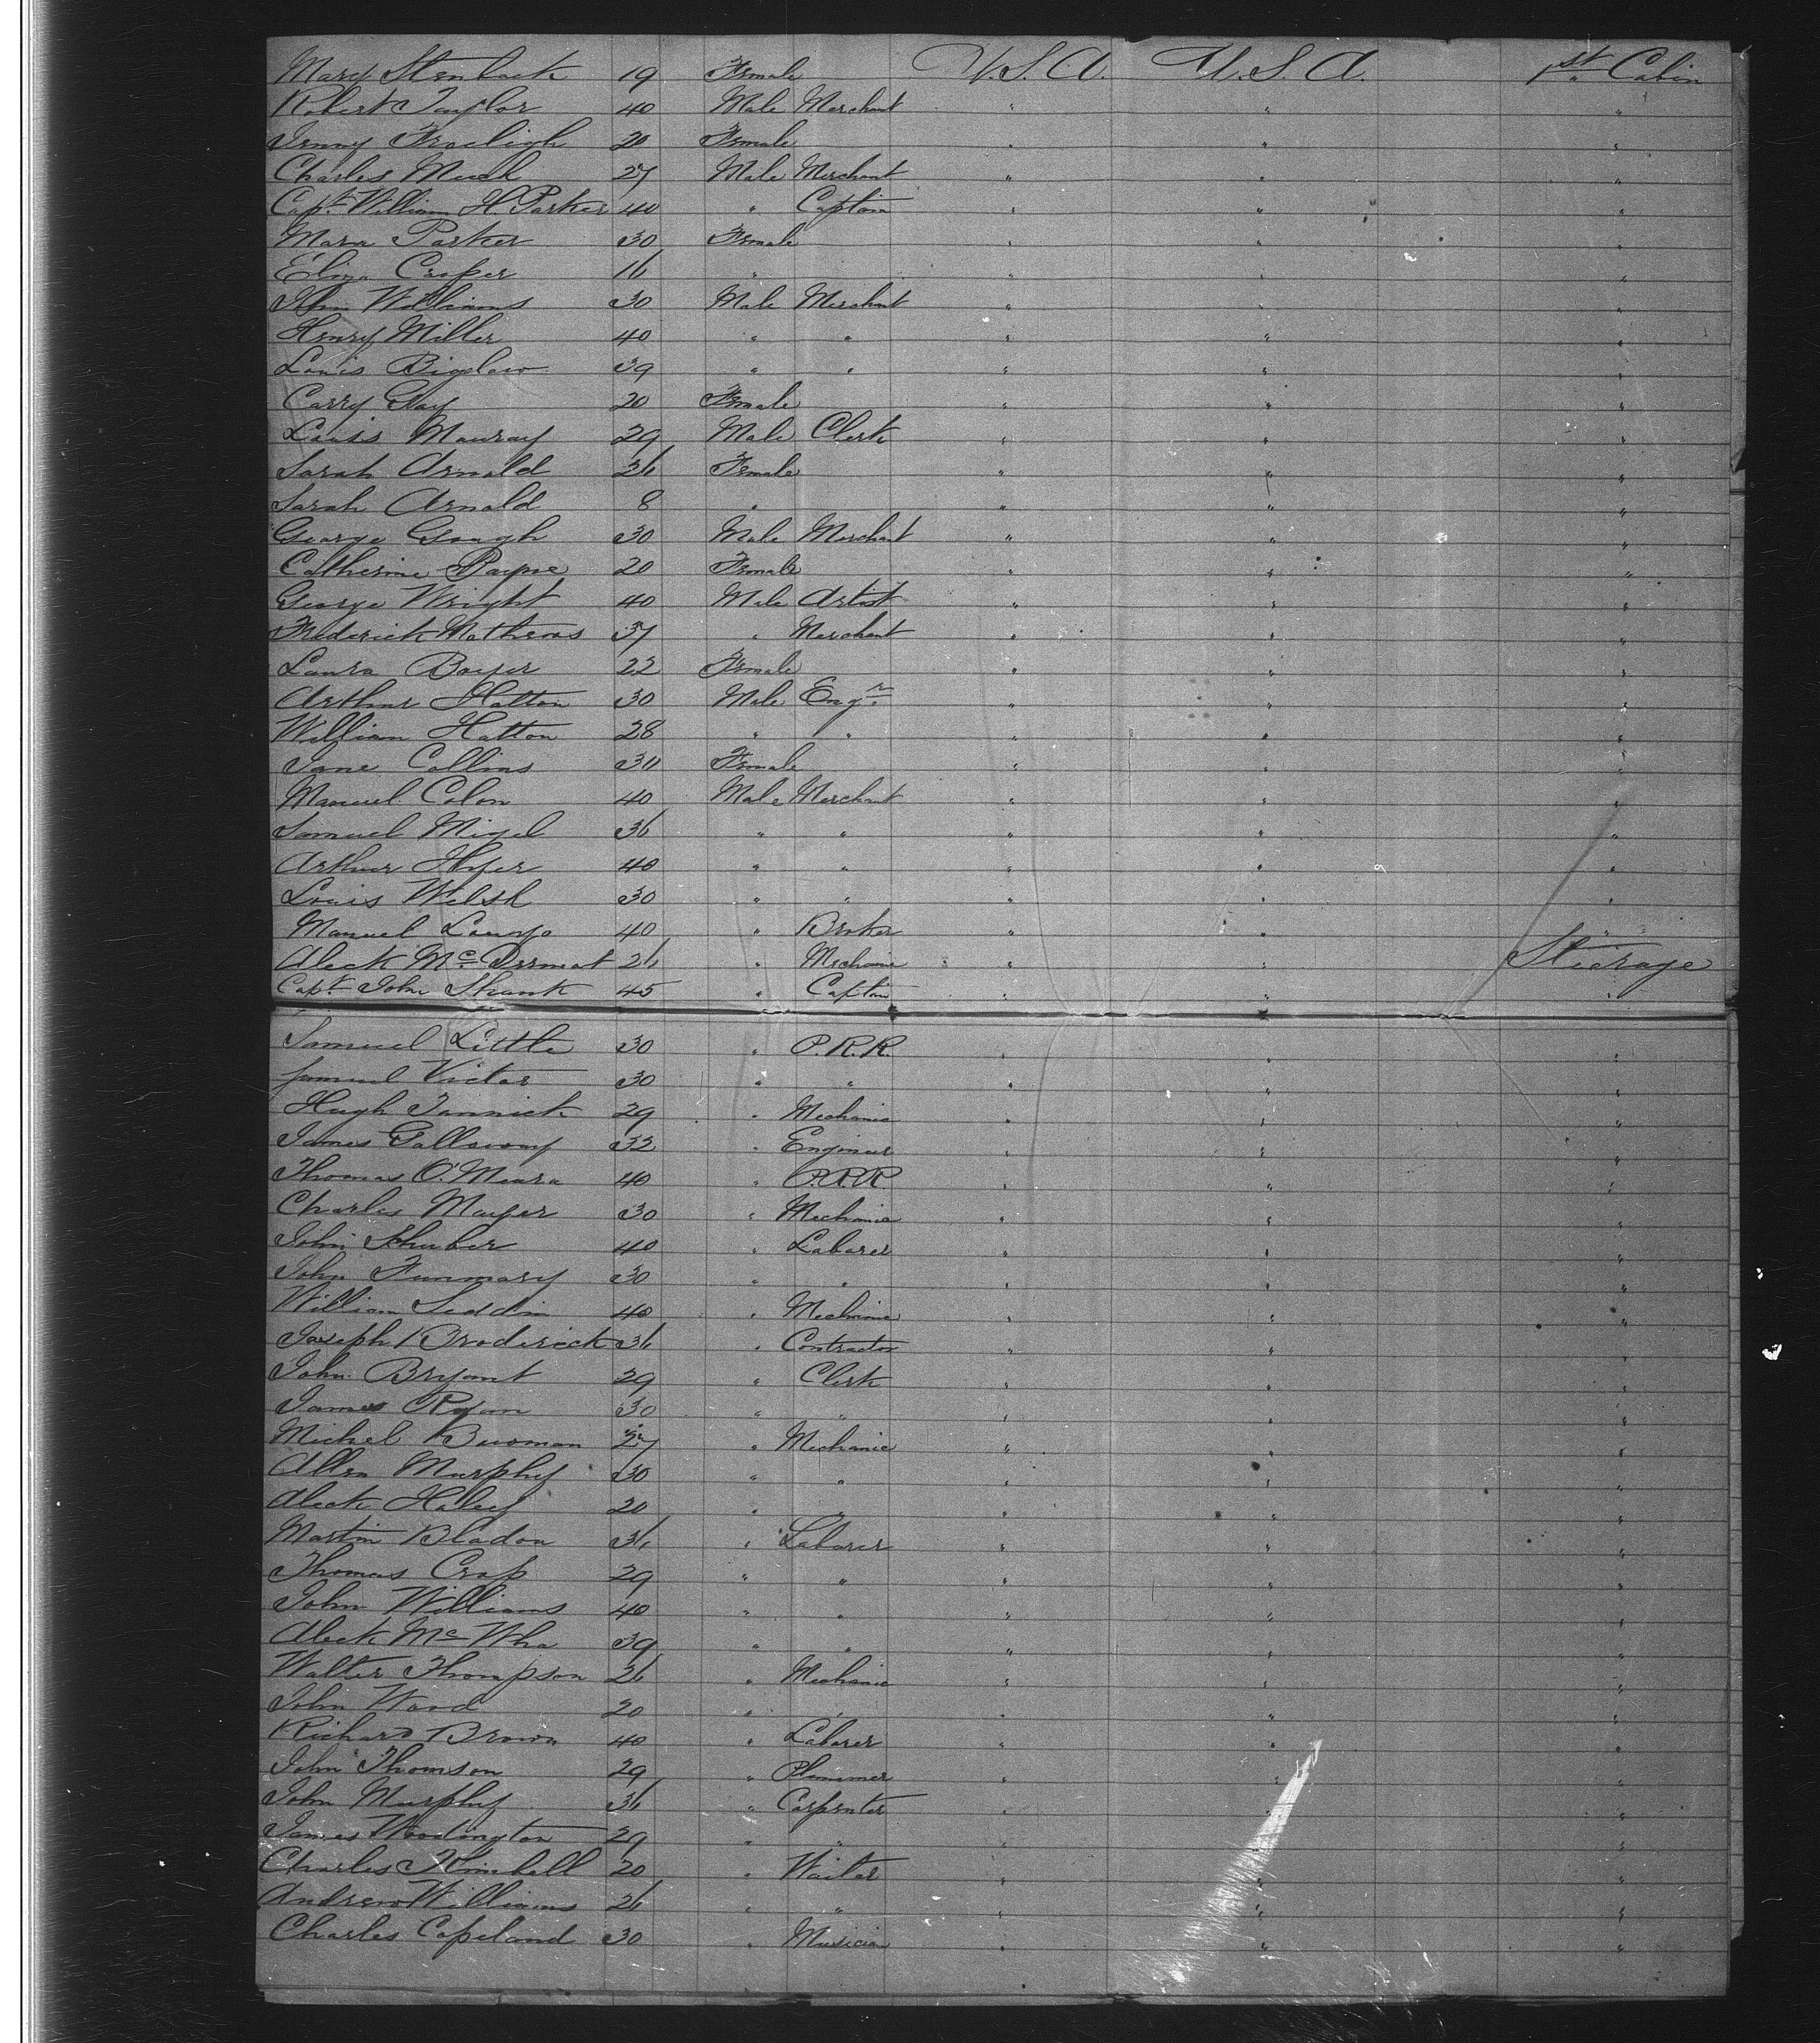 Mary Stenback 19 Female U.S.A. U.S.A. 1st Cabin
Robert Taylor 40 Male Merchant " " "
Jenny Fraligh 20 Female " " "
Charles 27 Male Merchant " " "
Capt. William H. Parker 40 " Captain " " "
Mara Parker 30 Female " " "
Eliza Cooper 16 " " " "
John Williams 30 Male Merchant " " "
Henry Miller 40 " " " " "
Louis Bigelow 39 " " " " "
Carry Gay 20 Female " " "
Louis Mouray 29 Male Clerk " " "
Sarah Arnold 36 Female " " "
Sarah Arnold 8 " " " "
George Gough 30 Male Merchant " " "
Catherine Payne 20 Female " " "
George Wright 40 Male Artist " " "
Frederick Mathews 37 " Merchant " " "
Laura Boyer 22 Female " " "
Arthur Hatton 30 Male Engr. " " "
William Hatton 28 " " " " "
Jane Collins 30 Female " " "
Manuel Colon 40 Male Merchant " " "
Samuel Migel 36 " " " " "
Arthur Hyer 40 " " " " "
Louis Welsh 30 " " " " "
Manuel 40 " Broker " " "
Aleck McDermat 26 " Mechanic " " Steerage
Capt. John Shank 45 " Captain " " "
Samuel Little 30 " P.R.R. " " "
Samuel Victor 30 " " " " "
Hugh Jannick 29 " Mechanic " " "
James Galloway 32 " Engineer " " "
Thomas O'Meara 40 " P.R.R " " "
Charles Mayer 30 " Mechanic " " "
John Shuber 40 " Labarer " " "
John Funmary 30 " " " " "
William Seddin 40 " Mechanic " " "
Joseph Broderick 36 " Contractor " " "
John Bryant 29 " Clerk " " "
James Ryan 30 " " " " "
Michel Buoman 27 " Mechanic " " "
Allen Murphy 30 " " " " "
Aleck Haley 20 " " " " "
Martin Bladon 36 " Labarer " " "
Thomas Crap 29 " " " " "
John Williams 40 " " " " "
Aleck McWha 39 " " " " "
Walter Thompson 26 " Mechanic " " "
John Wood 20 " " " " "
Richard Brown 40 " Labarer " " "
John Thomson 29 " Plummer " " "
John Murphy 36 " Carpenter " " "
James Woodington 29 " " " " "
Charles Kimball 20 " Waiter " " "
Andrew Williams 26 " " " " "
Charles Copeland 30 " Musician " " "